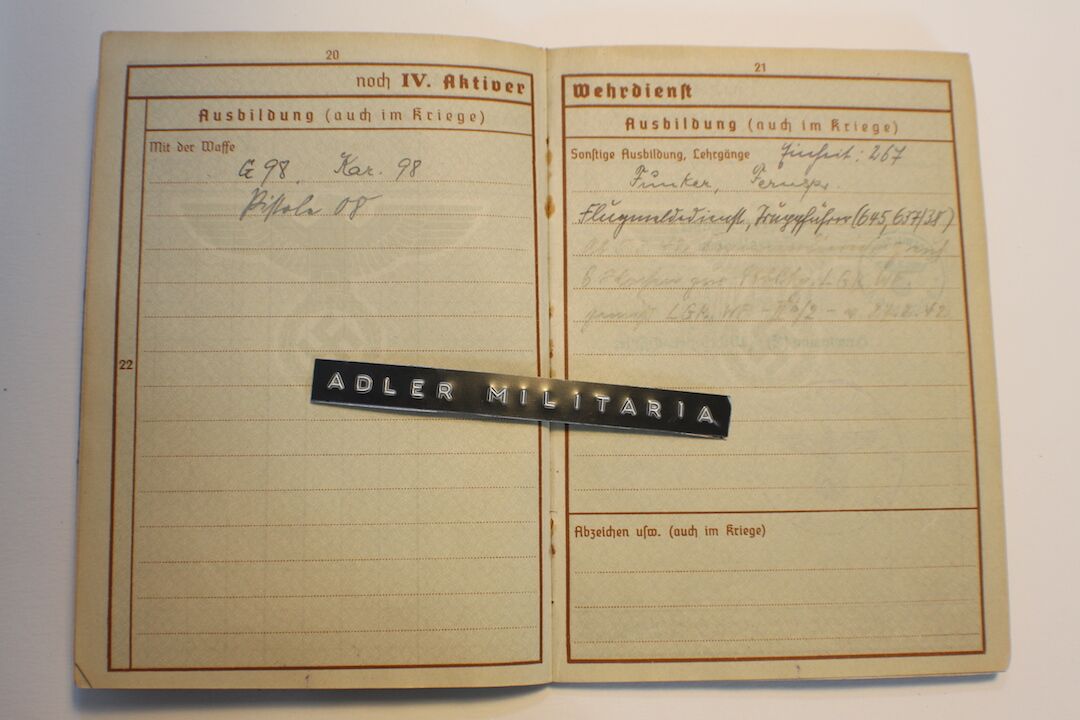 20
noch IV. Aktiver
Ausbildung (auch im Kriege)
Mit der Waffe
G 98, Kar. 98
Pistole 08
22
21
Wehrdienst
Ausbildung (auch im Kriege)
Sonstige Ausbildung, Lehrgänge Einheit: 267
Funker, Fernspr.
Flugmeldedienst, Truppführer (645, 637/38)
Abzeichen usw. (auch im Kriege)
ADLER MILITARIA